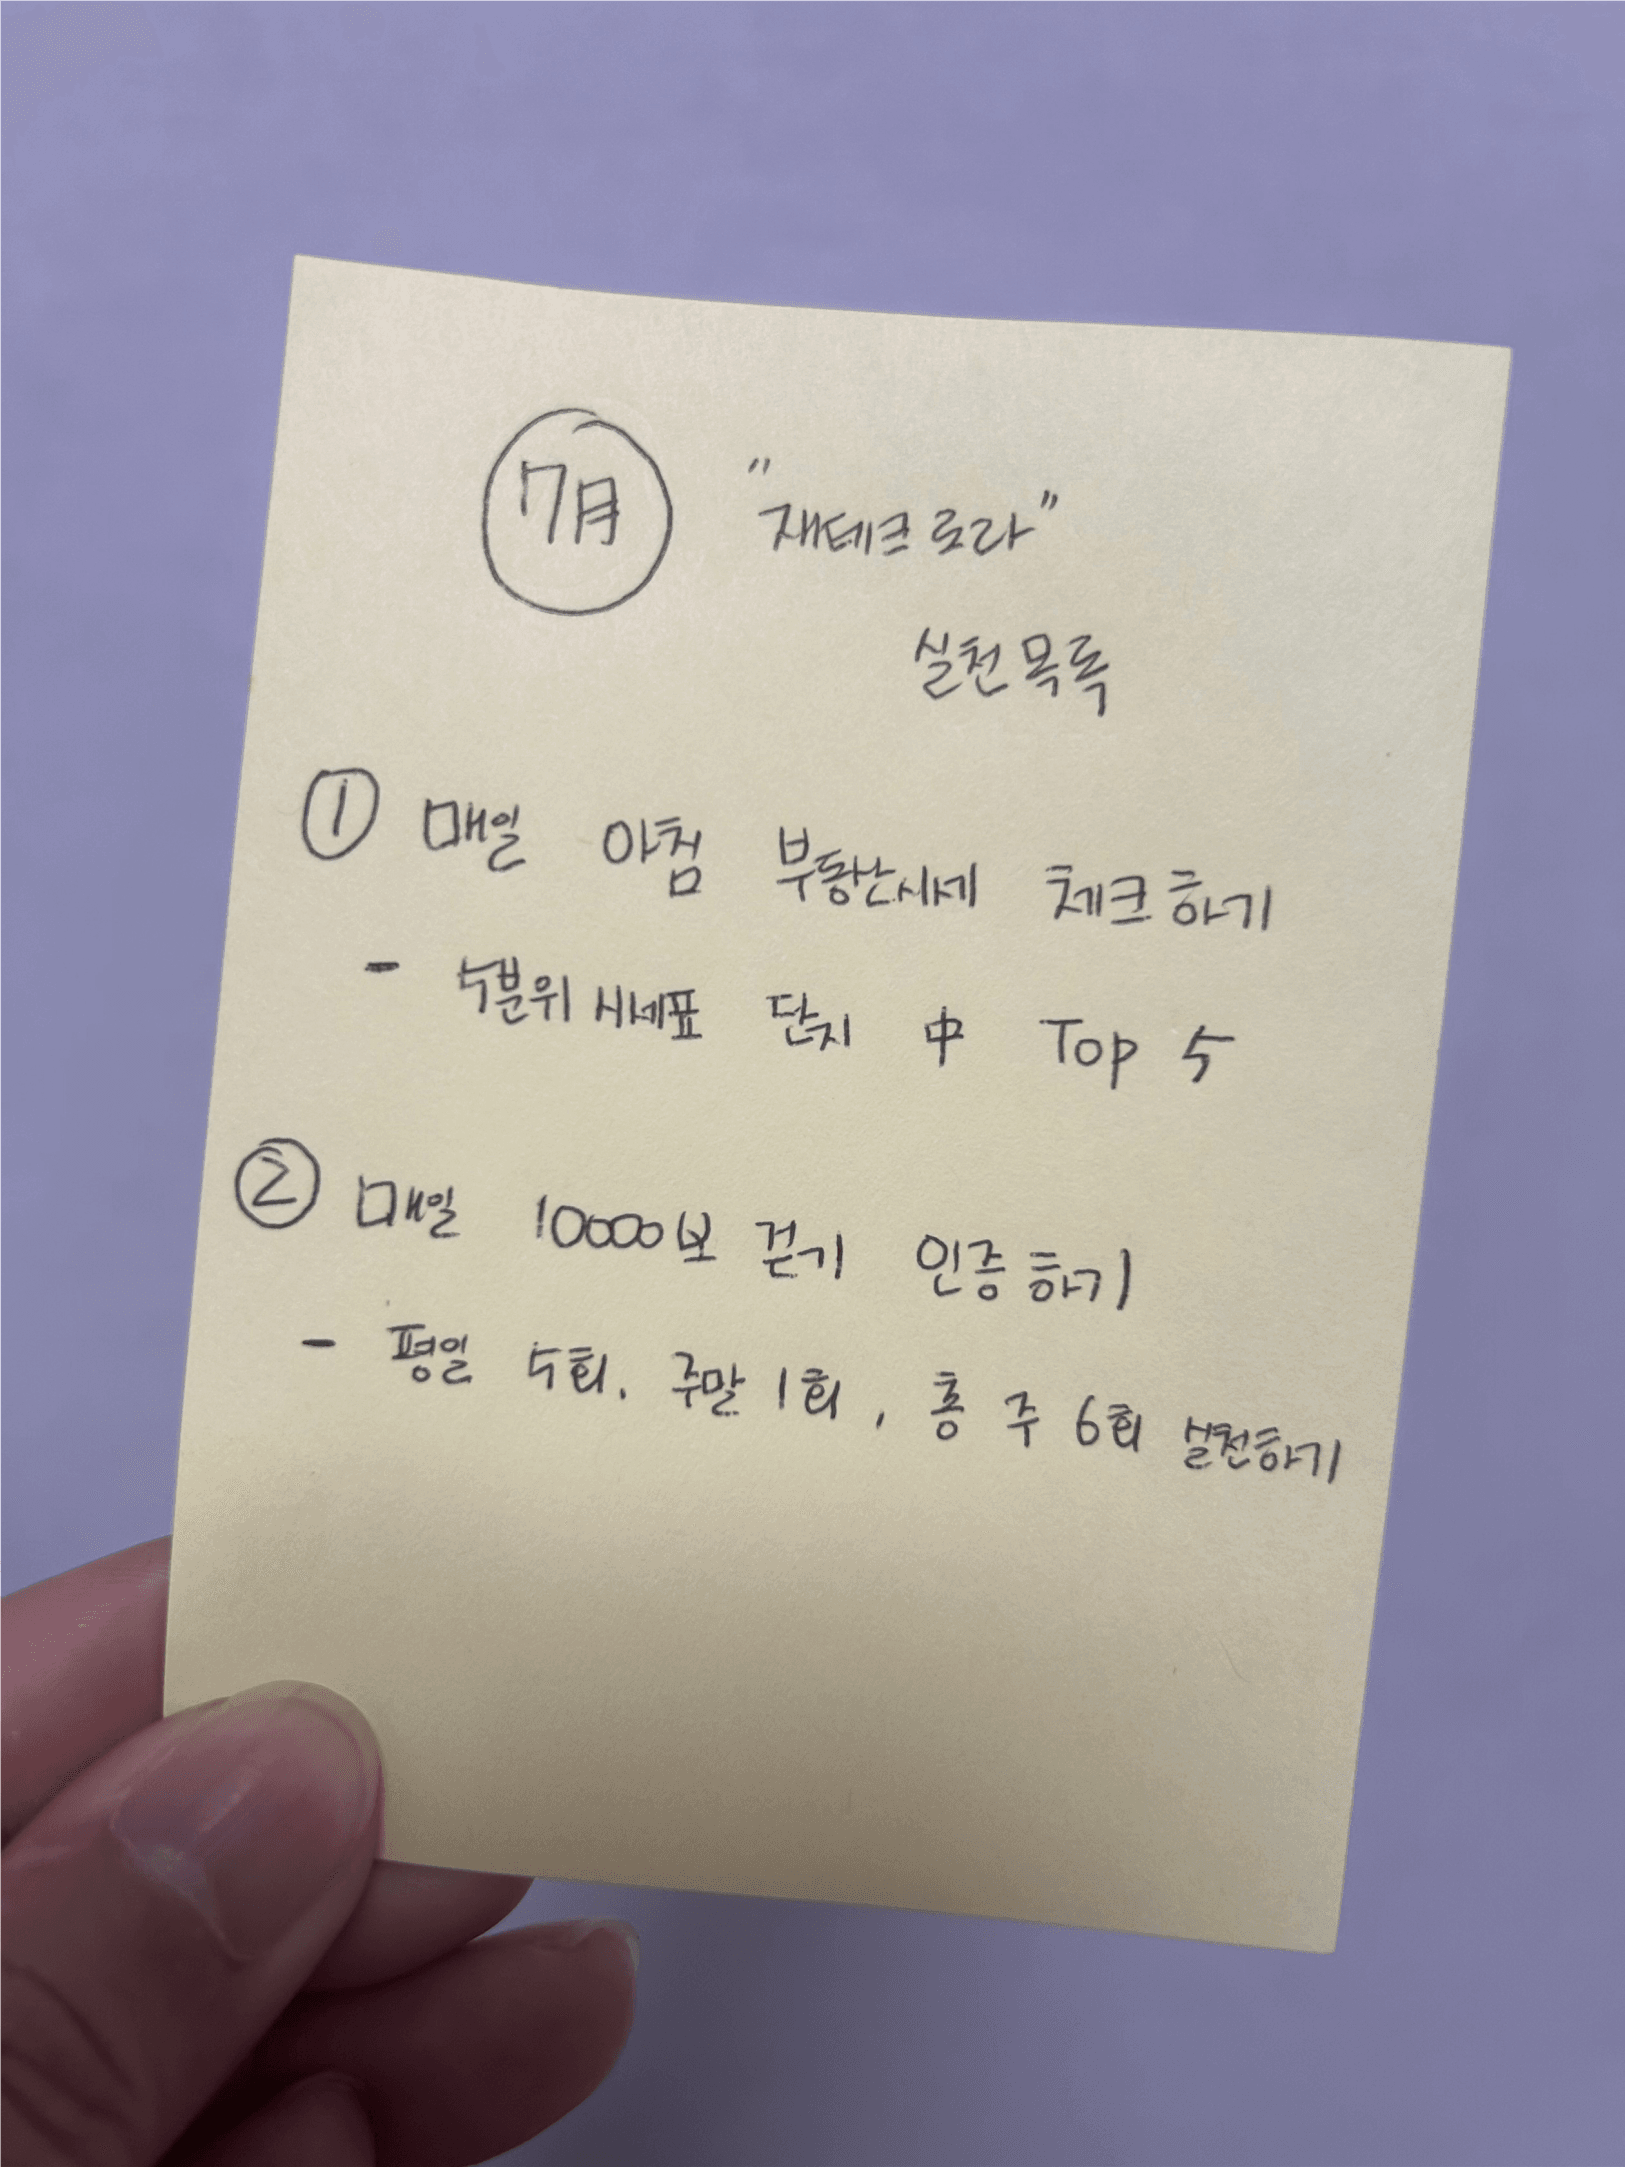 7月 "재테크로라"
실천목록
① 매일 아침 부동산시세 체크하기
- 5분위 시세표 단지 中 Top 5
② 매일 10000보 걷기 인증하기
- 평일 5회, 주말 1회, 총 주 6회 실천하기